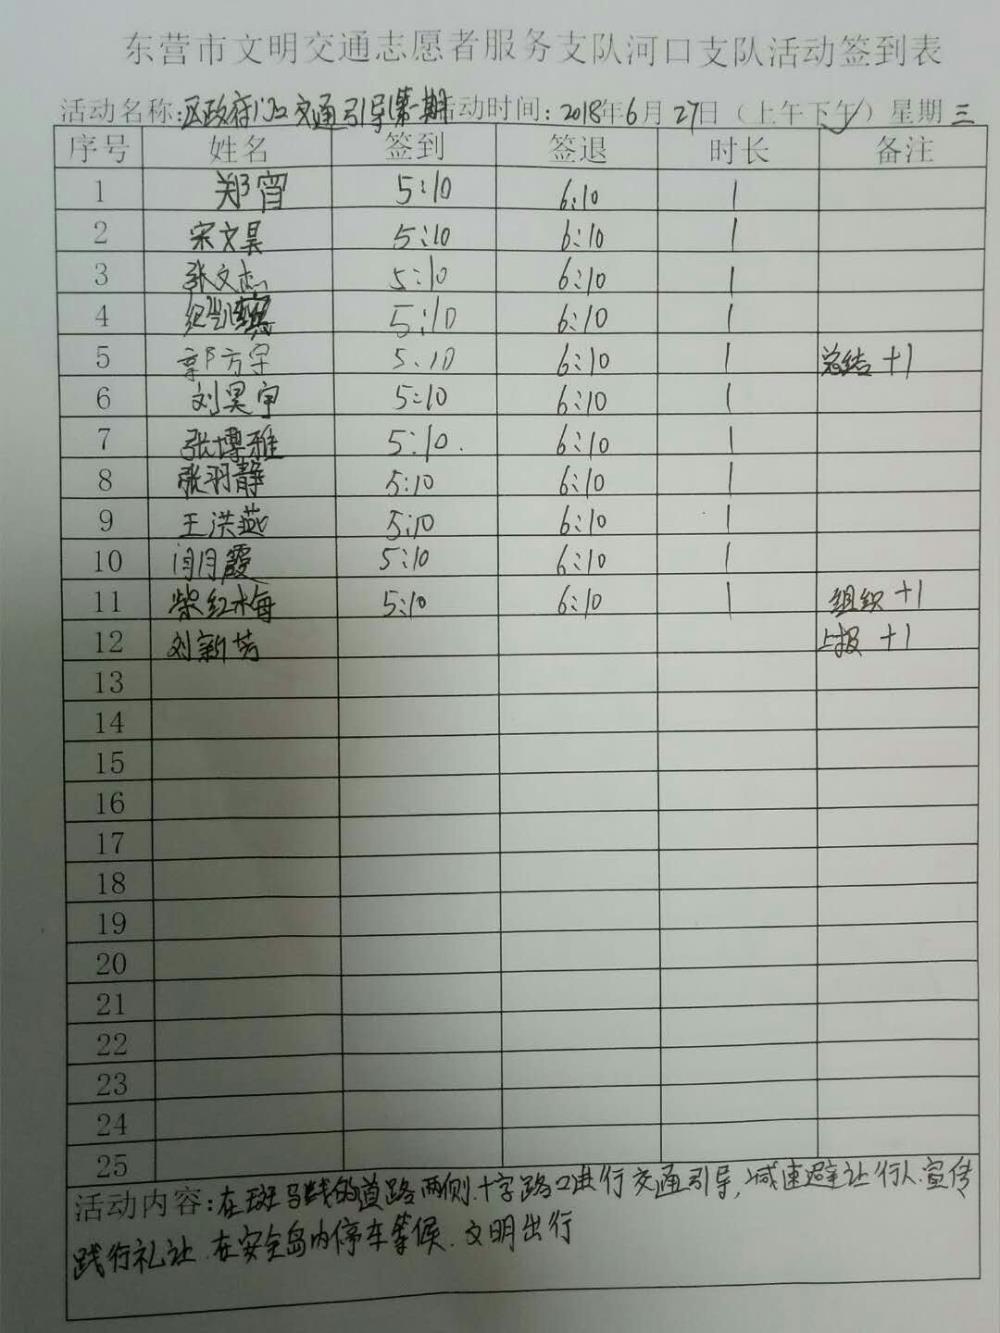 东营市文明交通志愿者服务支队河口支队活动签到表
活动名称:区政府门口交通引导(第一期 活动时间:2018年6月27日（上午下午）星期三
序号 姓名 签到 签退 时长 备注
1 郑宵 5:10 6:10 1
2 宋文昊 5:10 6:10 1
3 张文志 5:10 6:10 1
4 5:10 6:10 1
5 郭方宇 5:10 6:10 1 总结+1
6 刘昊宇 5:10 6:10 1
7 张博雅 5:10. 6:10 1
8 张羽静 5:10 6:10 1
9 王洪燕 5:10 6:10 1
10 闫月霞 5:10 6:10 1
11 柴红梅 5:10 6:10 1 组织+1
12 刘新芳 上报+1
13
14
15
16
17
18
19
20
21
22
23
24
25
活动内容:在斑马线的道路两侧.十字路口进行交通引导,减速避让行人.宣传
践行礼让.在安全岛内停车等候.文明出行